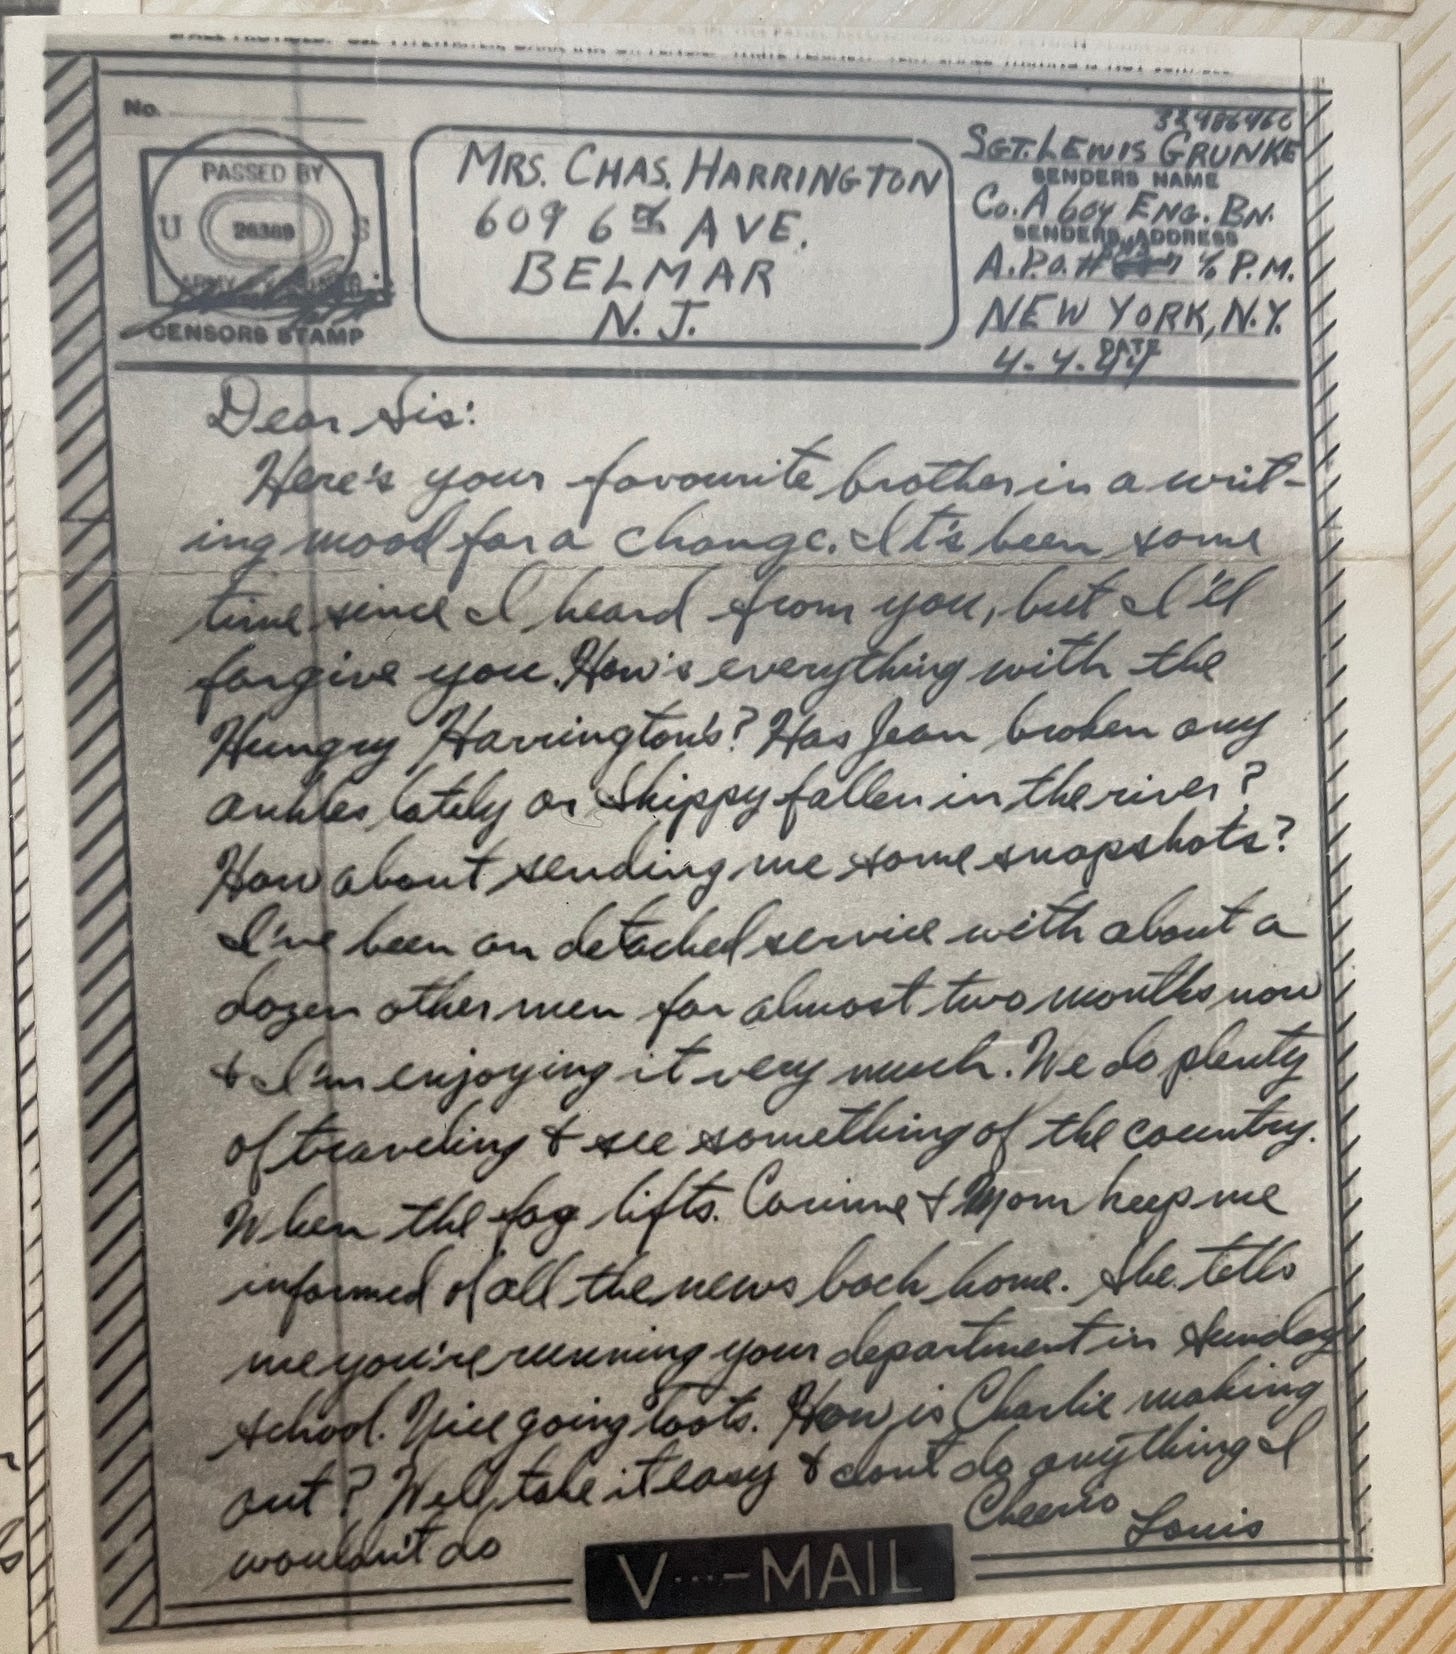 No.
PASSED BY
U S
26389
ARMY EXAMINER
CENSORS STAMP
MRS. CHAS. HARRINGTON
609 6th AVE.
BELMAR
N. J.
SGT. LEWIS GRUNKE
SENDERS NAME
Co. A 604 ENG. BN.
SENDERS ADDRESS
A.P.O. # % P.M.
NEW YORK, N.Y.
DATE
4-4-44
Dear Sis:
Here's your favourite brother in a writ-
ing mood for a change. It's been some
time since I heard from you, but I'll
forgive you. How's everything with the
Hungry Harrington's? Has Jean broken any
ankles lately or Skippy fallen in the river?
How about sending me some snapshots?
I've been on detached service with about a
dozen other men for almost two months now
& I'm enjoying it very much. We do plenty
of traveling & see something of the country.
When the fog lifts. Corinne & Mom keep me
informed of all the news back home. She tells
me you're running your department in Sunday
school. Nice going toots. How is Charlie making
out? Well take it easy & don't do anything I
wouldn't do
Cheerio
Louis
V···–MAIL